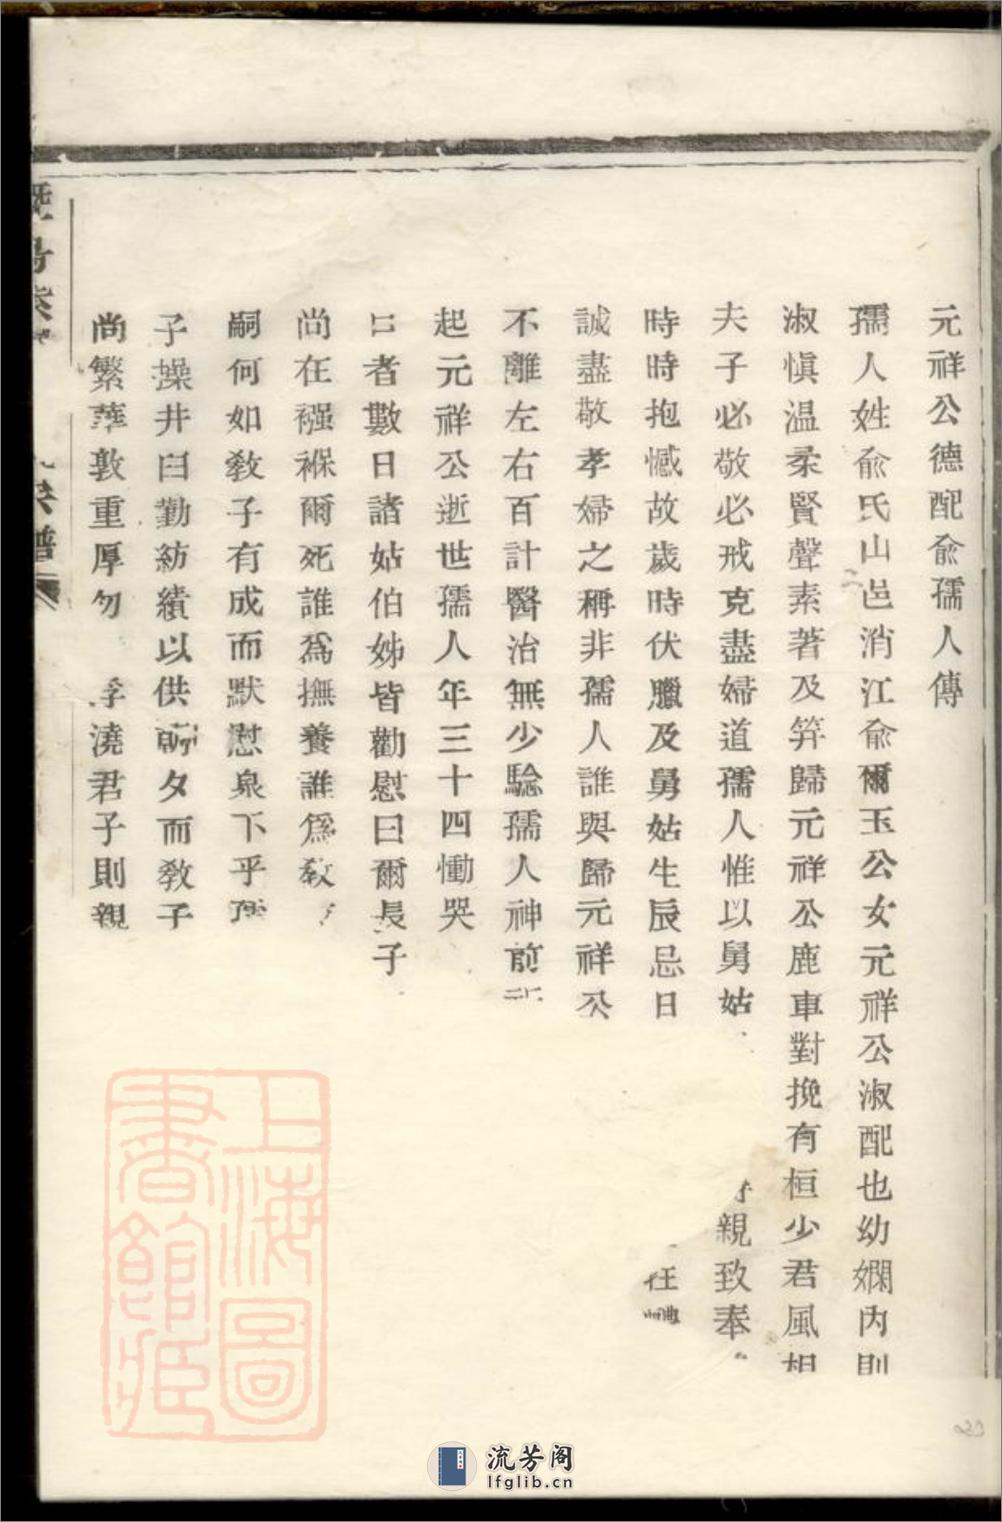 元祥公德配俞孺人傳
孺人姓俞氏山邑消江俞爾玉公女元祥公淑配也幼嫻內則
淑慎温柔賢聲素著及笄歸元祥公鹿車對挽有桓少君風相
夫子必敬必戒克盡婦道孺人惟以舅姑 親致奉
時時抱憾故歲時伏臘及舅姑生辰忌日 在
誠盡敬孝婦之稱非孺人誰與歸元祥公
不離左右百計醫治無少驗孺人神前
起元祥公逝世孺人年三十四慟哭
者數日諸姑伯姊皆勸慰曰爾長子
尚在襁褓爾死誰爲撫養誰爲教
嗣何如教子有成而默慰泉下乎孺
子操井臼勤紡績以供朝夕而教子
尚繁華敦重厚勿 浮澆君子則親
譜
上海圖書館藏
流芳阁
lfglib.cn